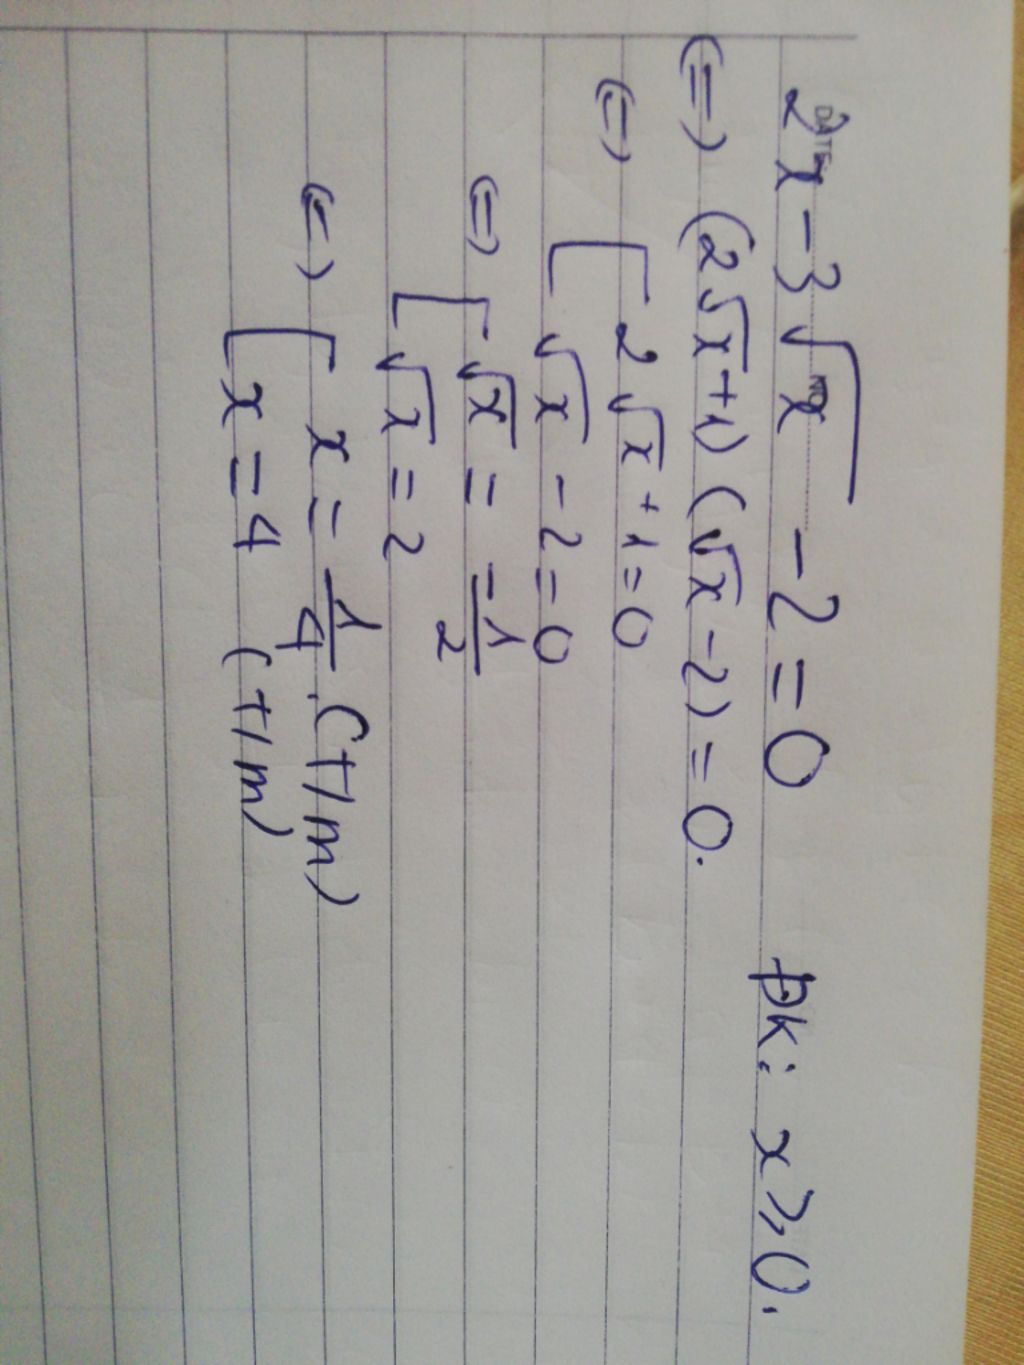 DATE
NO
2x - 3√x - 2 = 0 ĐK: x ≥ 0.
(=) (2√x + 1) (√x - 2) = 0.
(=) [ 2√x + 1 = 0
√x - 2 = 0
(=) [ √x = -1/2
√x = 2
(=) [ x = 1/4 . (t/m)
x = 4 (t/m)